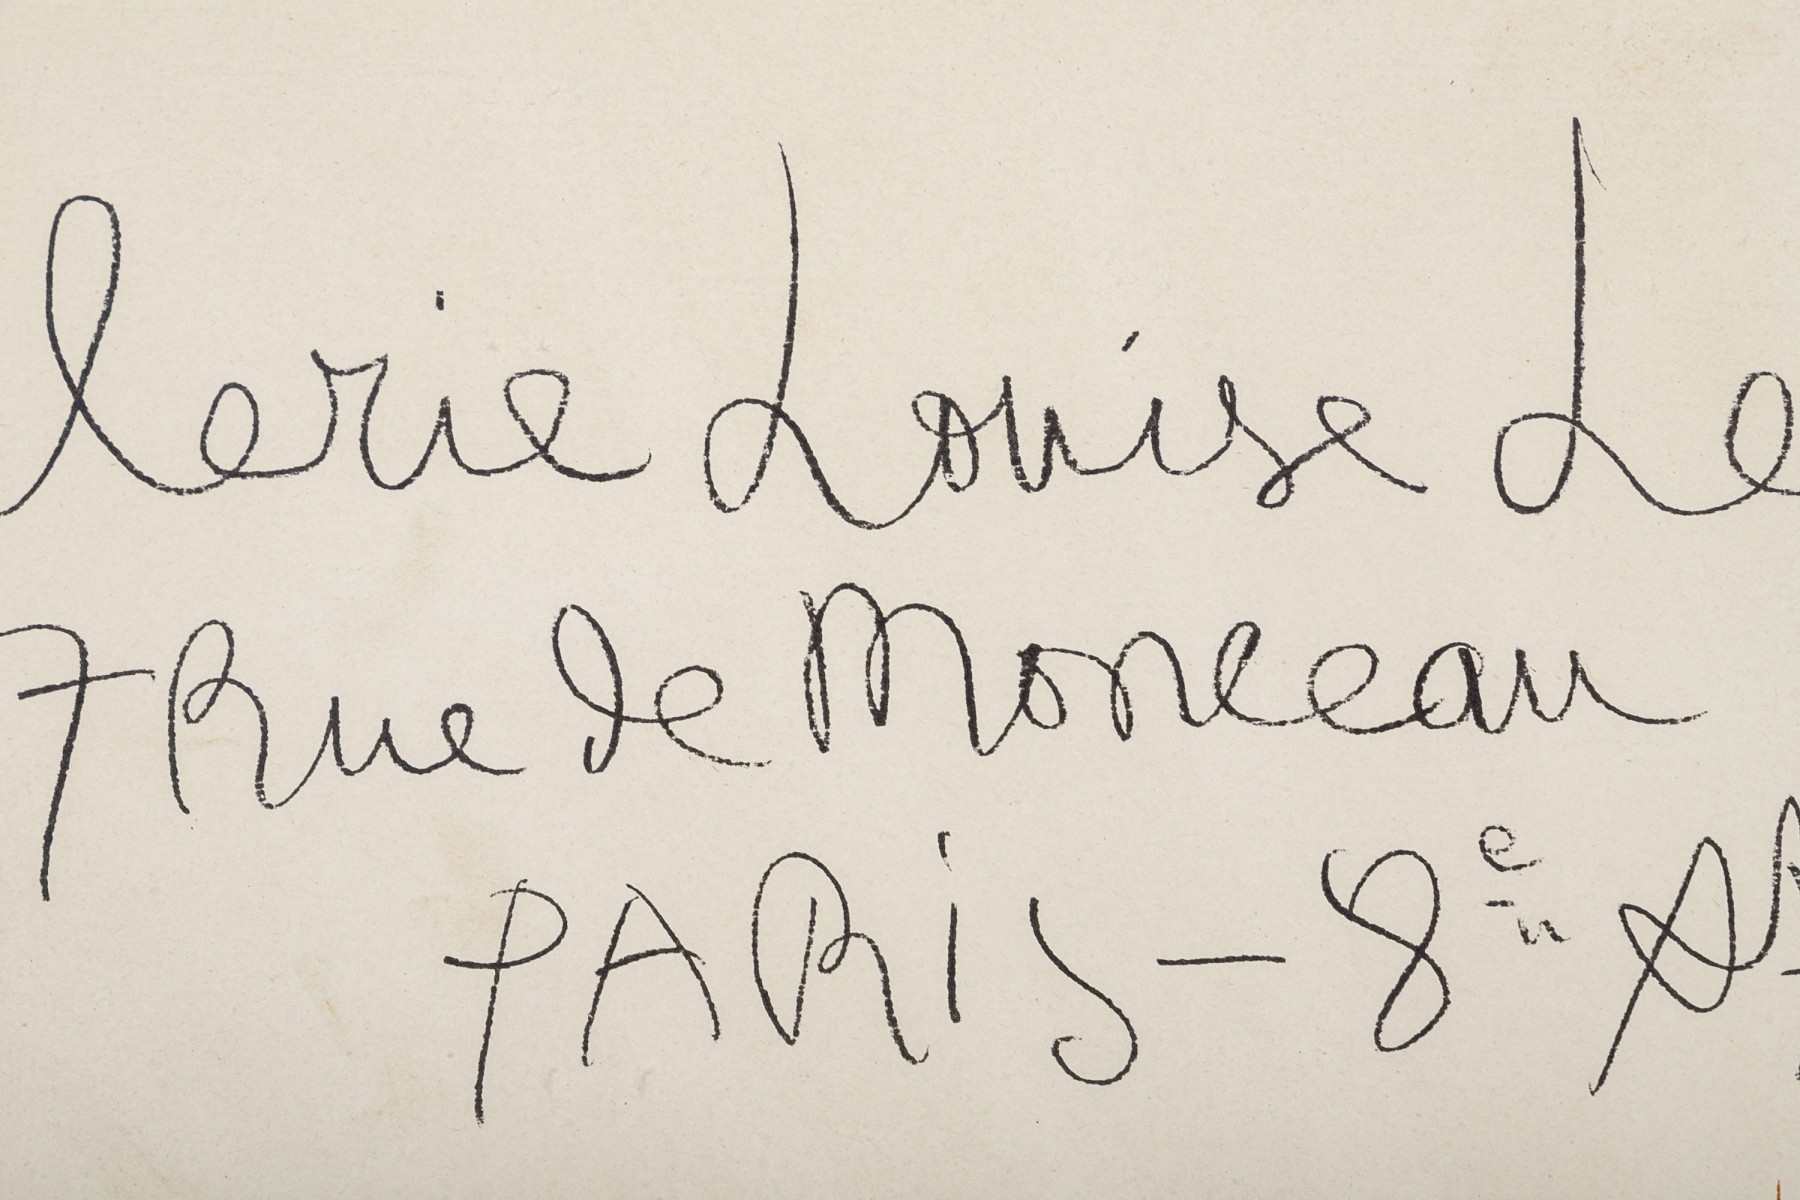 lerie Louise Le
7 Rue de Monceau
PARiS — 8e